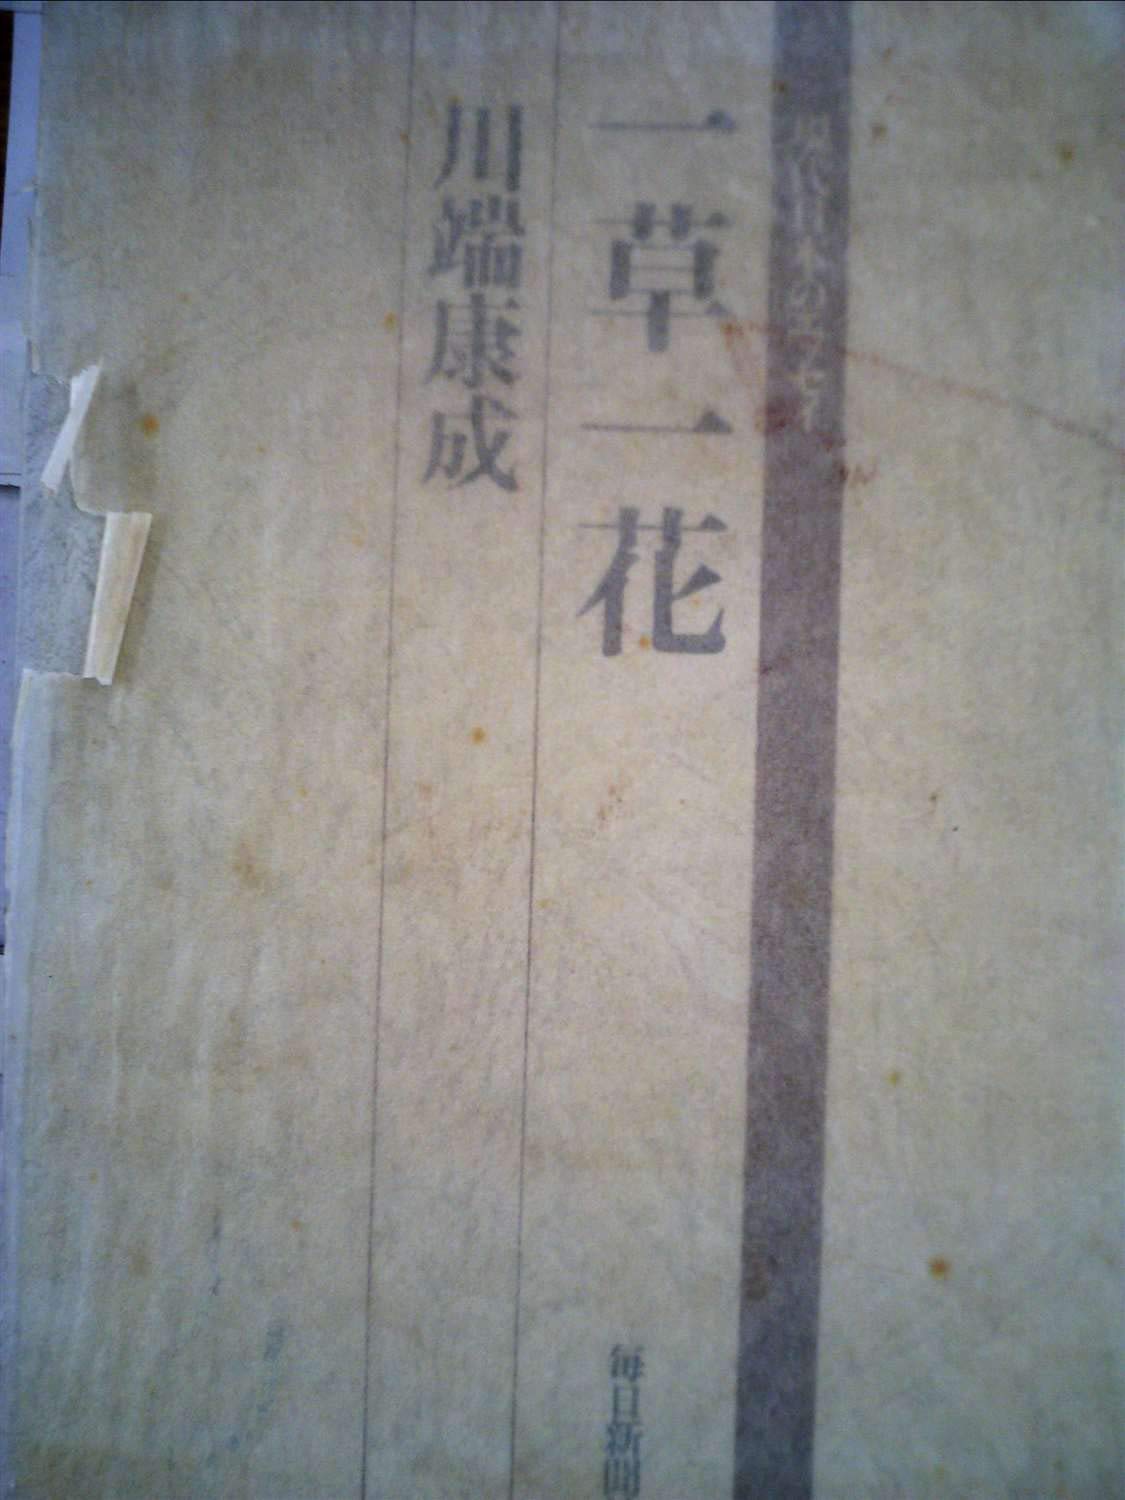 現代日本のエッセイ
一草一花
川端康成
毎日新聞